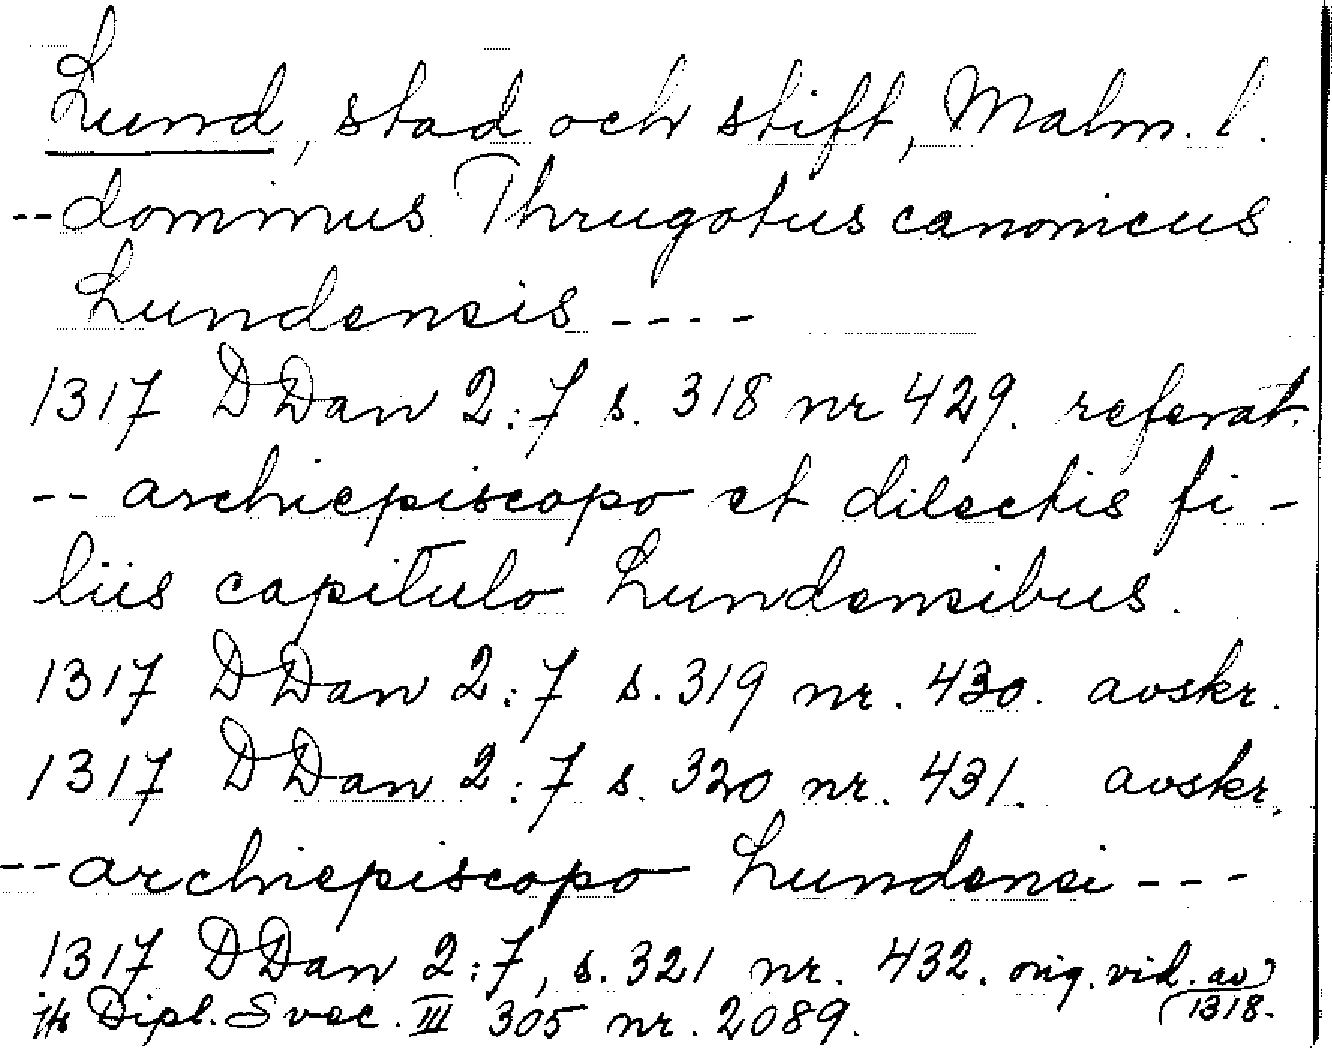 Lund, stad och stift, Malm. l.
-- dominus Thrugotus canonicus
Lundensis ----
1317 DDan 2:7 s. 318 nr 429. referat.
-- archiepiscopo et dilectis fi-
liis capitulo Lundensibus.
1317 DDan 2:7 s. 319 nr. 430. avskr.
1317 DDan 2:7 s. 320 nr. 431. avskr.
-- archiepiscopo Lundensi ---
1317 DDan 2:7, s. 321 nr. 432. orig. vid. av
1318.
jfr Dipl. Svec. III 305 nr. 2089.